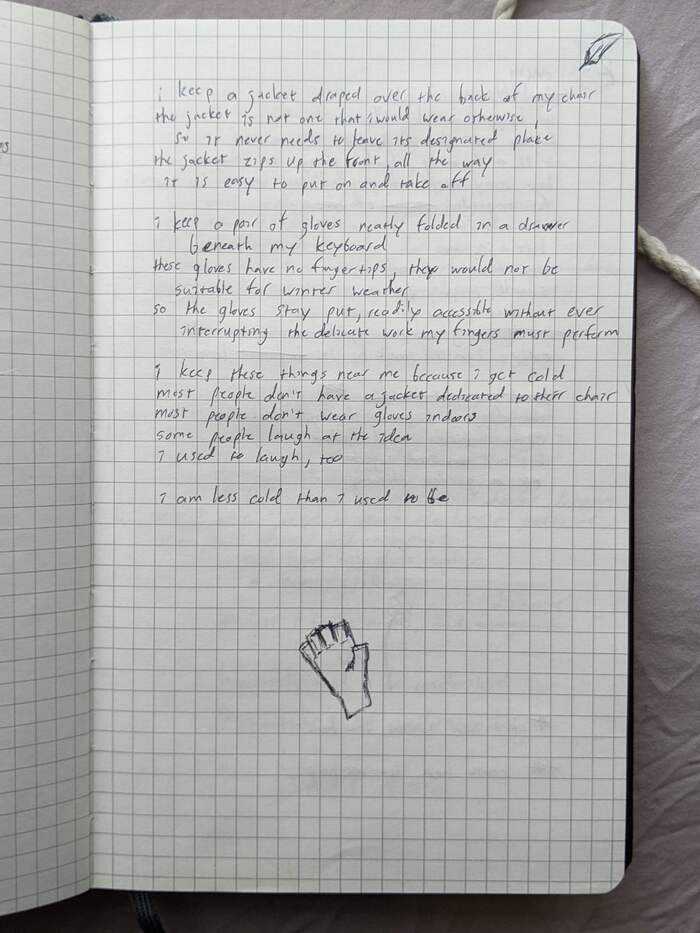 i keep a jacket draped over the back of my chair
the jacket is not one that i would wear otherwise,
so it never needs to leave its designated place
the jacket zips up the front, all the way
it is easy to put on and take off
i keep a pair of gloves neatly folded in a drawer
beneath my keyboard
these gloves have no fingertips, they would not be
suitable for winter weather
so the gloves stay put, readily accessible without ever
interrupting the delicate work my fingers must perform
i keep these things near me because i get cold
most people don't have a jacket dedicated to their chair
most people don't wear gloves indoors
some people laugh at the idea
i used to laugh, too
i am less cold than i used to be